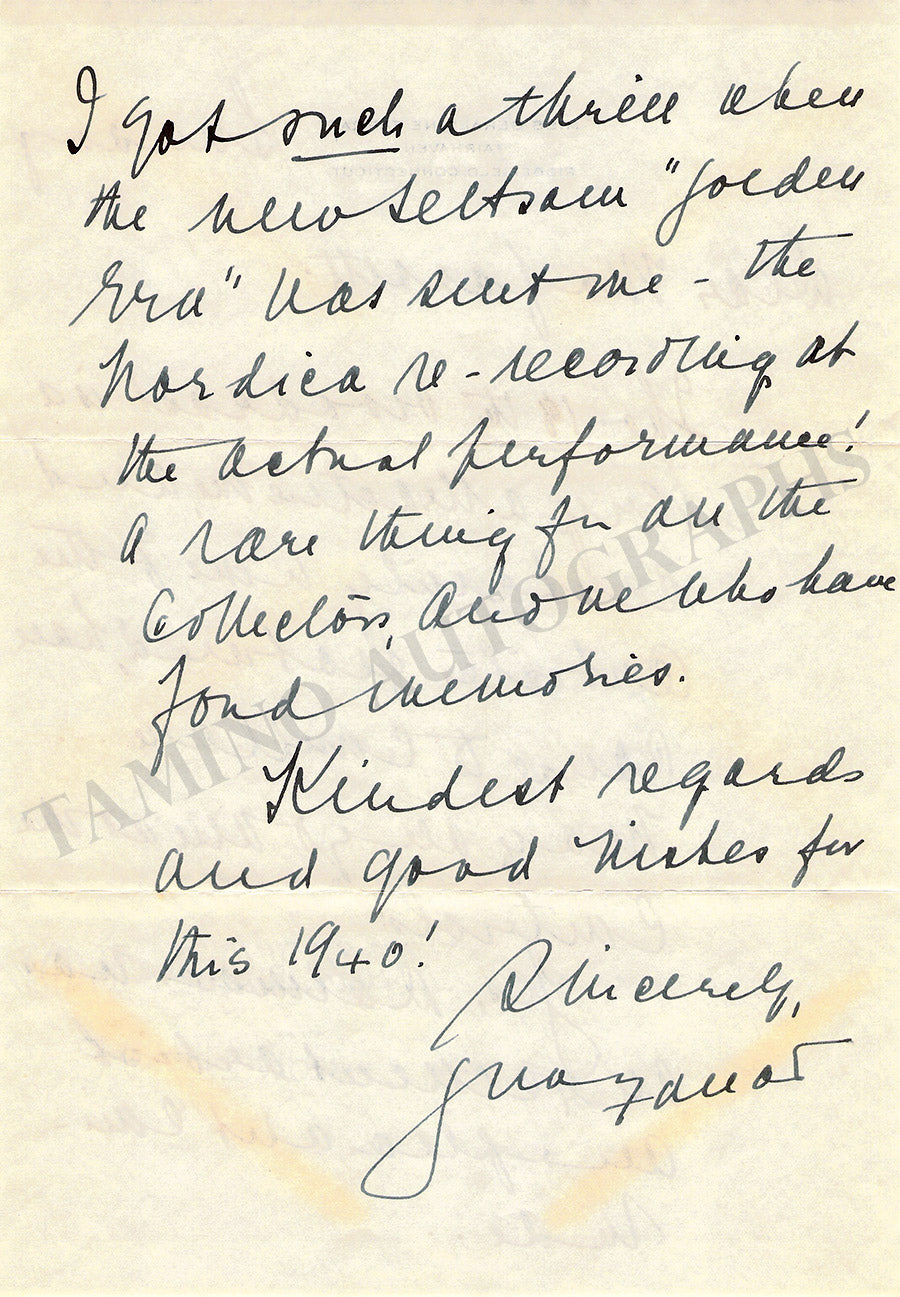 I got such a thrill when
the new Seltsam "Golden
Era" was sent me - the
Nordica re-recording at
the actual performance!
A rare thing for all the
Collectors, and we who have
fond memories.
Kindest regards
and good wishes for
this 1940!
Sincerely,
TAMINO AUTOGRAPHS